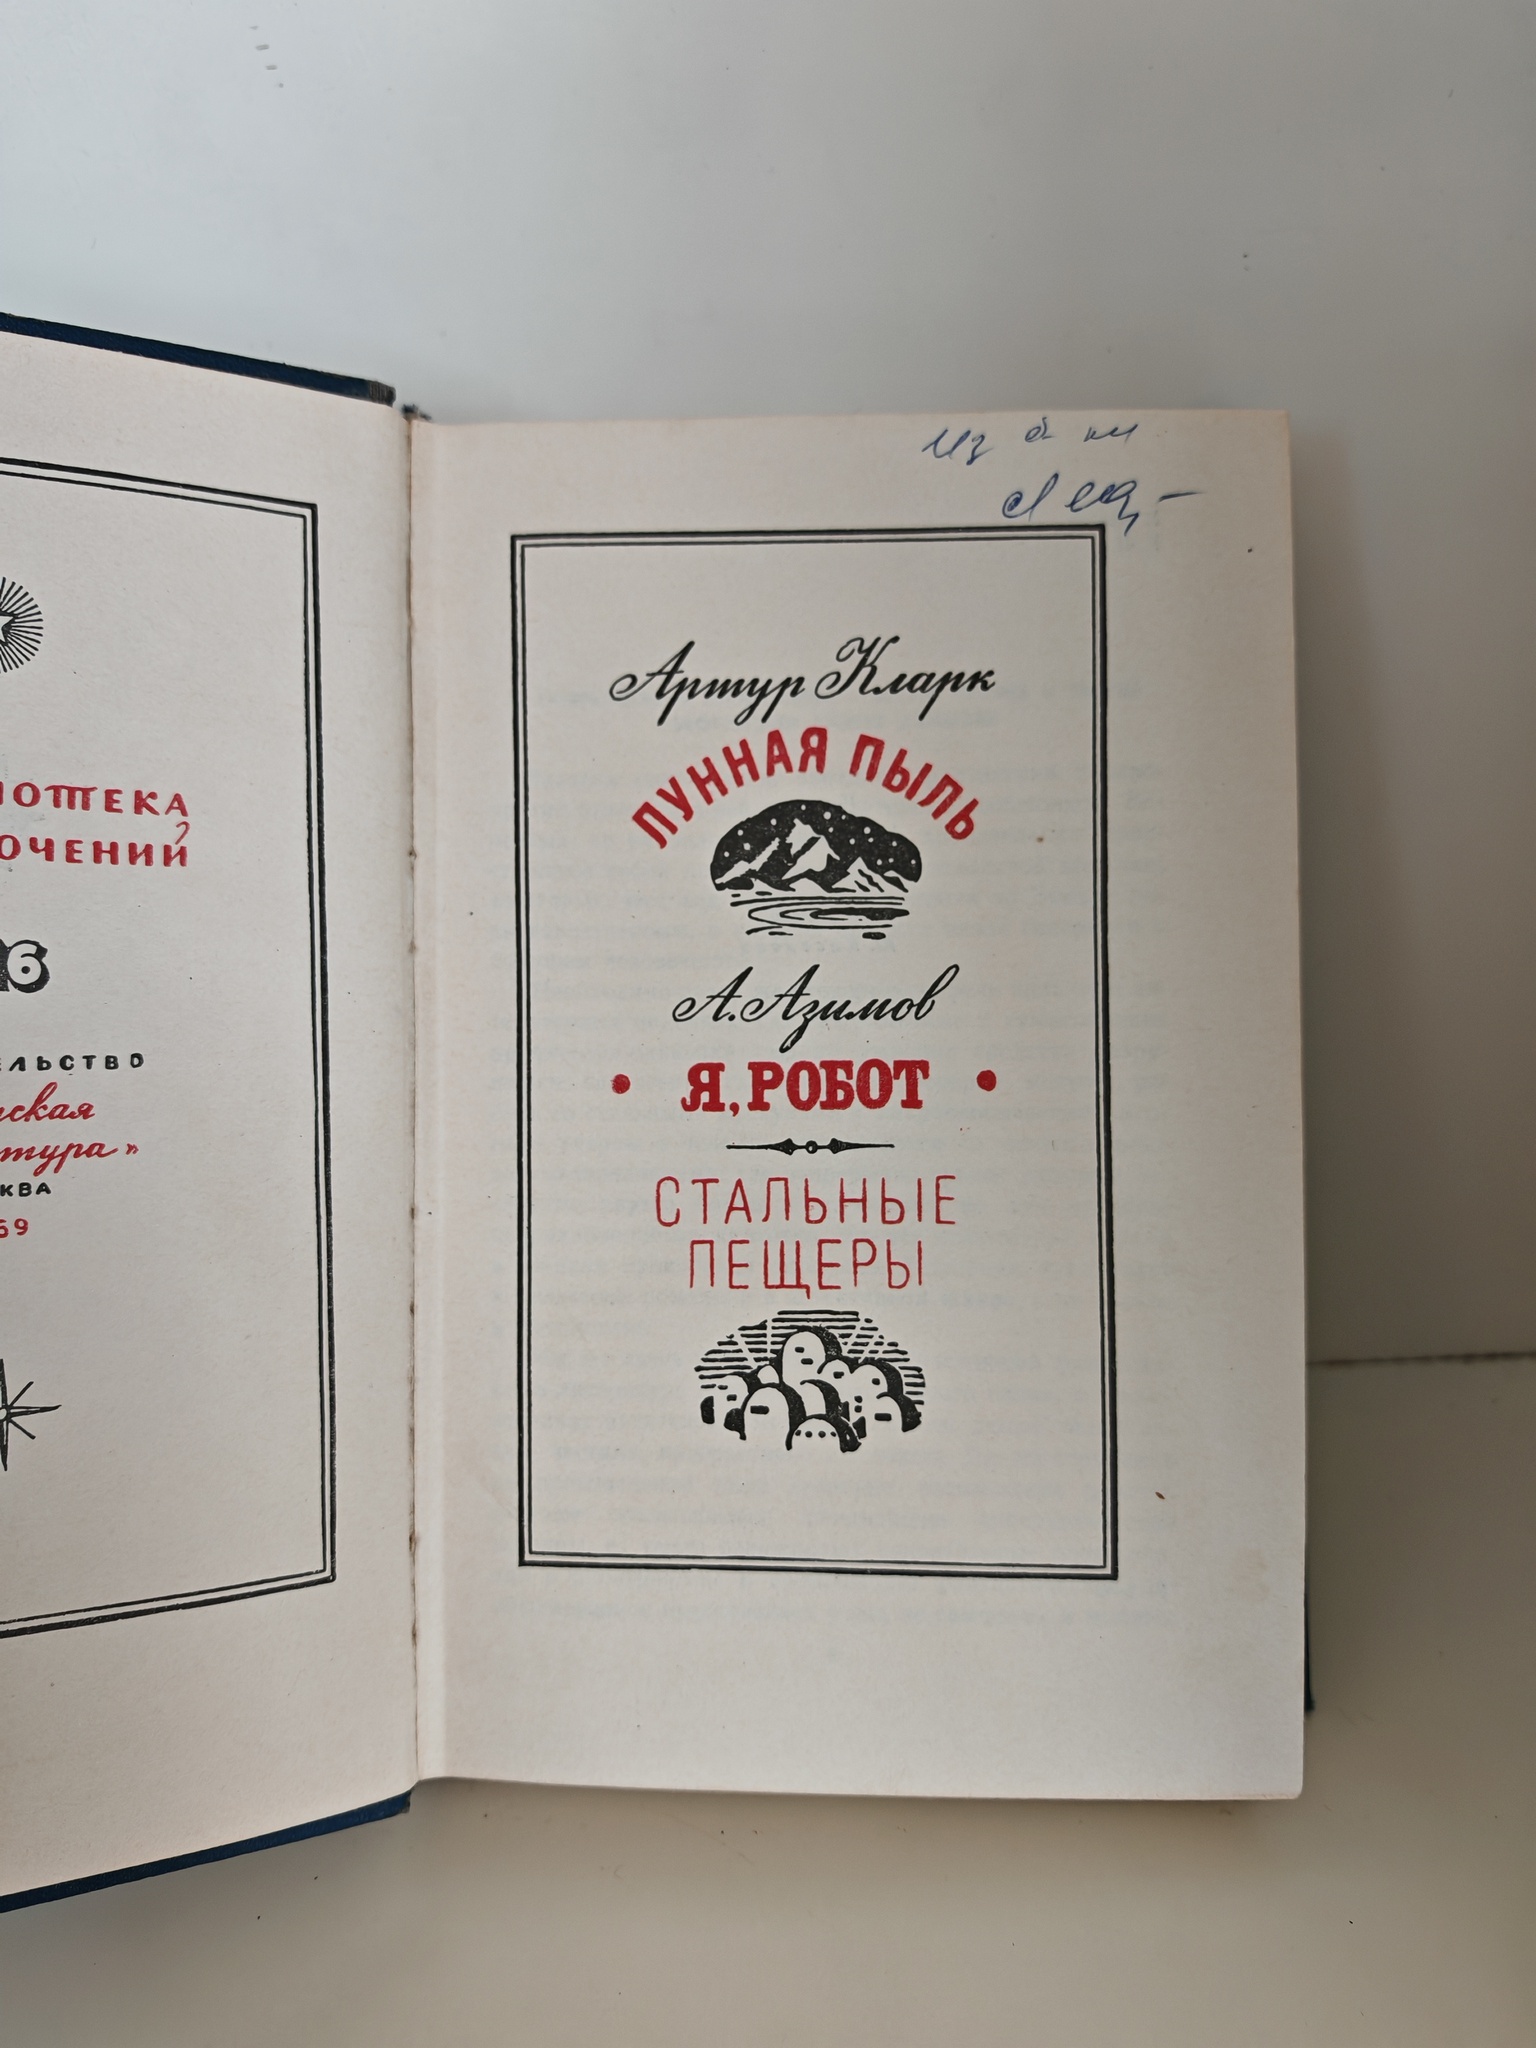 ИОТЕКА
ОЧЕНИЙ
6
ЕЛЬСТВО
ская
тура»
КВА
69
Из б-ки
Артур Кларк
ЛУННАЯ ПЫЛЬ
А. Азимов
• Я, РОБОТ •
СТАЛЬНЫЕ
ПЕЩЕРЫ